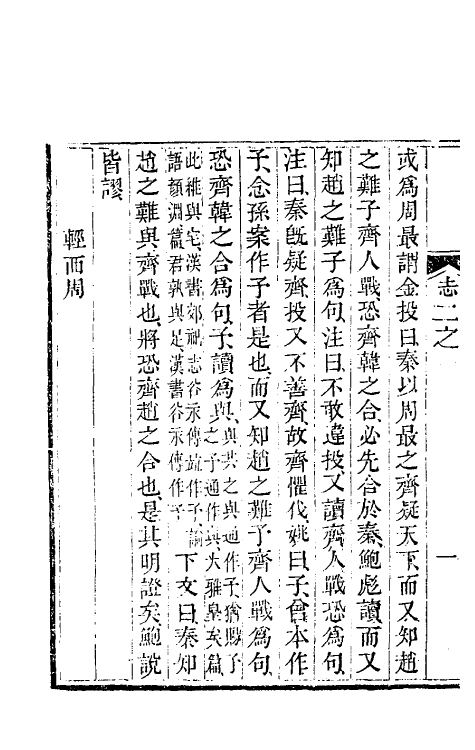 志二之　一
或爲周最謂金投曰秦以周最之齊疑天下而又知趙
之難子齊人戰恐齊韓之合必先合於秦鮑彪讀而又
知趙之難子爲句注曰不敢違投又讀齊人戰恐爲句
注曰秦旣疑齊投又不善齊故齊懼伐姚曰子曾本作
予念孫案作予者是也而又知趙之難予齊人戰爲句
恐齊韓之合爲句予讀爲與與共之與通作予猶賜予
之予通作與大雅皇矣篇
此維與宅漢書郊祀志谷永傳竝作予論
語顏淵篇君孰與足漢書谷永傳作予
下文曰秦知
趙之難與齊戰也將恐齊趙之合也是其明證矣鮑說
皆謬
輕而周